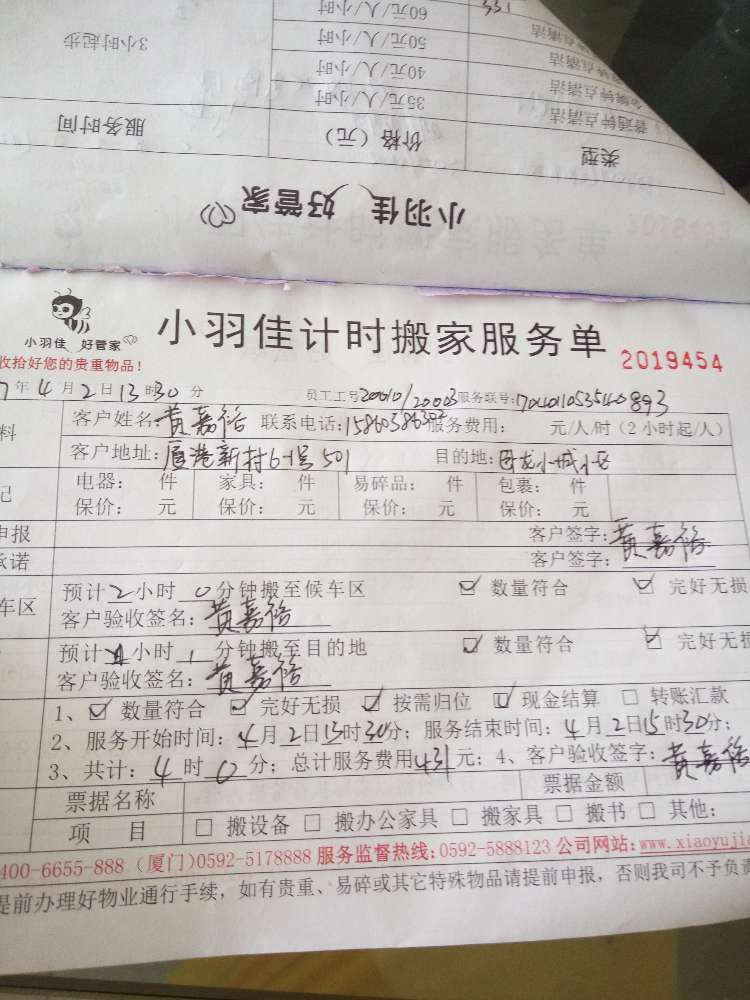 60元/人/小时
50元/人/小时
40元/人/小时
普通钟点清洁 35元/人/小时
3小时起步
类型 价格（元） 服务时间
小羽佳 好管家
小羽佳 好管家
小羽佳计时搬家服务单 2019454
收拾好您的贵重物品！
7年4月2日13时30分 员工工号20010/20003服务联号:
客户姓名:黄嘉裕 联系电话: 服务费用: 元/人/时(2小时起/人)
客户地址:厦港新村6-1号501 目的地:
电器: 件 家具: 件 易碎品: 件 包裹: 件
保价: 元 保价: 元 保价: 元 保价: 元
申报 客户签字:黄嘉裕
承诺 客户签字:
车区 预计2小时0分钟搬至候车区 ☑数量符合 ☑完好无损
客户验收签名:黄嘉裕
预计 小时1分钟搬至目的地 ☑数量符合 ☑完好无损
客户验收签名:黄嘉裕
1、☑数量符合 ☑完好无损 ☑按需归位 ☑现金结算 □转账汇款
2、服务开始时间:4月2日13时30分；服务结束时间:4月2日15时30分；
3、共计:4时0分；总计服务费用431元；4、客户验收签字:黄嘉裕
票据名称 票据金额
项 目 □搬设备 □搬办公家具 □搬家具 □搬书 □其他:
400-6655-888（厦门)0592-5178888 服务监督热线:0592-5888123 公司网站:www.xiaoyujia
提前办理好物业通行手续，如有贵重、易碎或其它特殊物品请提前申报，否则我司不予负责